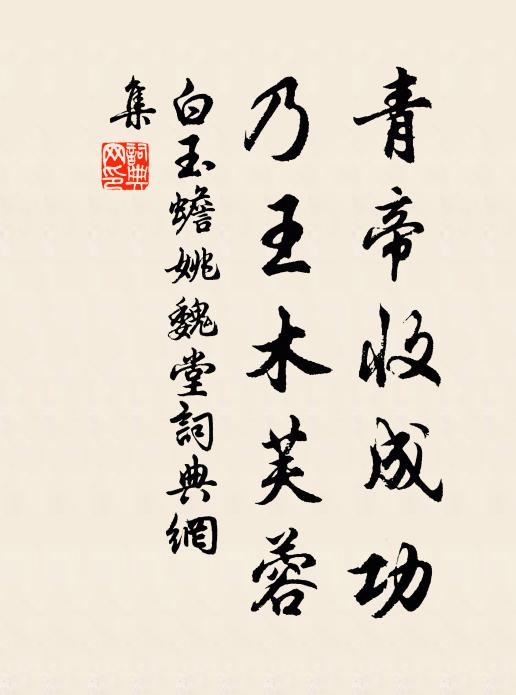 青帝收成功
乃王木芙蓉
白玉蟾姚魏堂詞典網
集
詞典
网印